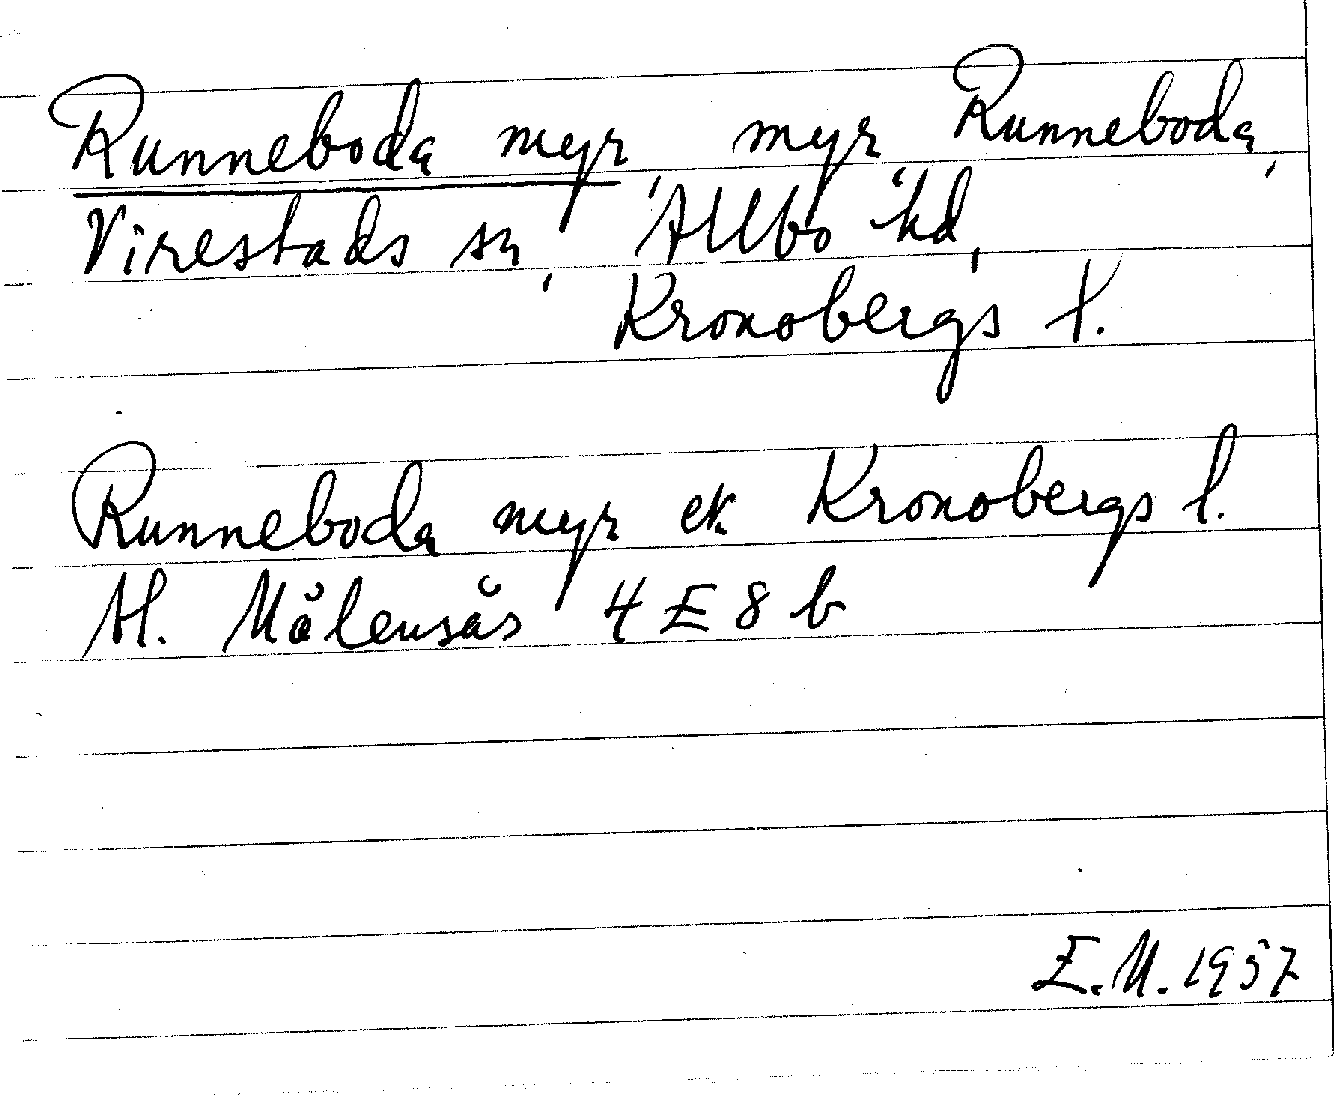 Runneboda myr, myr Runneboda,
Virestads sn, Allbo hd,
Kronobergs l.
Runneboda myr ek Kronobergs l.
Al. Målensås 4 E 8 b
E.M. 1937